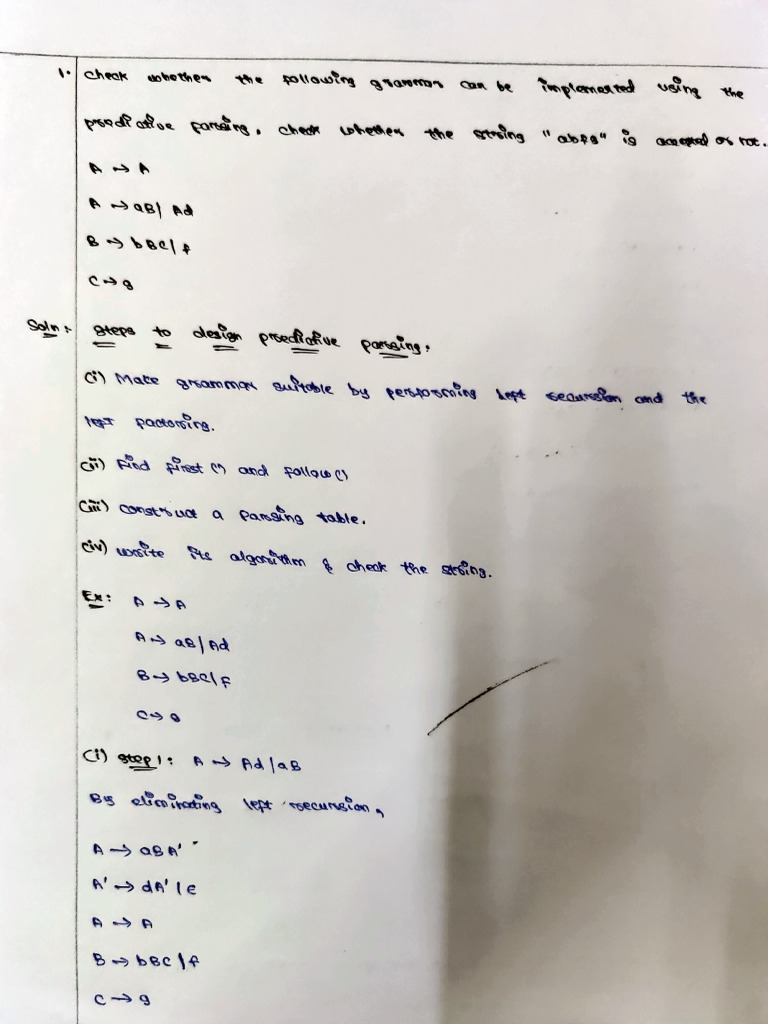 1. Check whether the following grammar can be implemented using the
predictive parsing. Check whether the string "abfg" is accepted or not.
A → A
A → aB| Ad
B → bBC|f
C → g
Soln: Steps to design predictive parsing:
(i) Make grammar suitable by performing left recursion and the
left factoring.
(ii) Find first() and follow()
(iii) construct a parsing table.
(iv) write its algorithm & check the string.
Ex: A → A
A → aB|Ad
B → bBC|f
C → g
(i) Step 1: A → Ad|aB
By eliminating left recursion,
A → aBA'
A' → dA'|ϵ
A → A
B → bBC|f
C → g